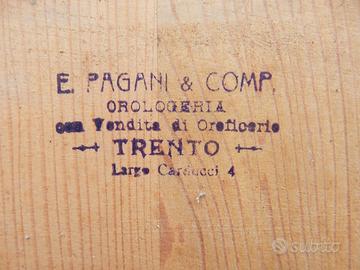 E. PAGANI & COMP.
OROLOGERIA
con Vendita di Oreficerie
TRENTO
Largo Carducci 4
subito